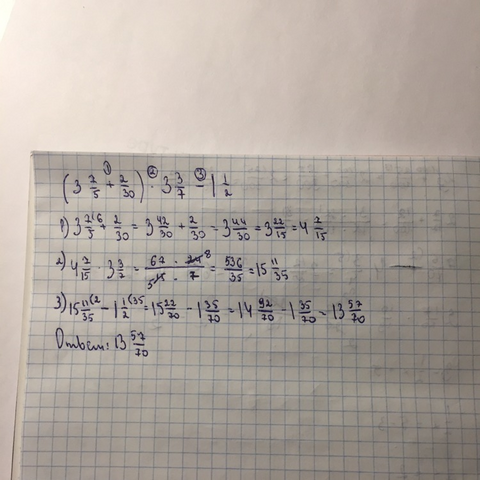 (3 7/5 + 2/30) · 3 3/7 - 1 1/2
1) 3 7/5 + 2/30 = 3 42/30 + 2/30 = 3 44/30 = 3 22/15 = 4 7/15
2) 4 7/15 · 3 3/7 = 67 · 24 8/5 15 · 7 = 536/35 = 15 11/35
3) 15 11/35 (2 - 1 1/2 (35 = 15 22/70 - 1 35/70 = 14 92/70 - 1 35/70 = 13 57/70
Ответ: 13 57/70